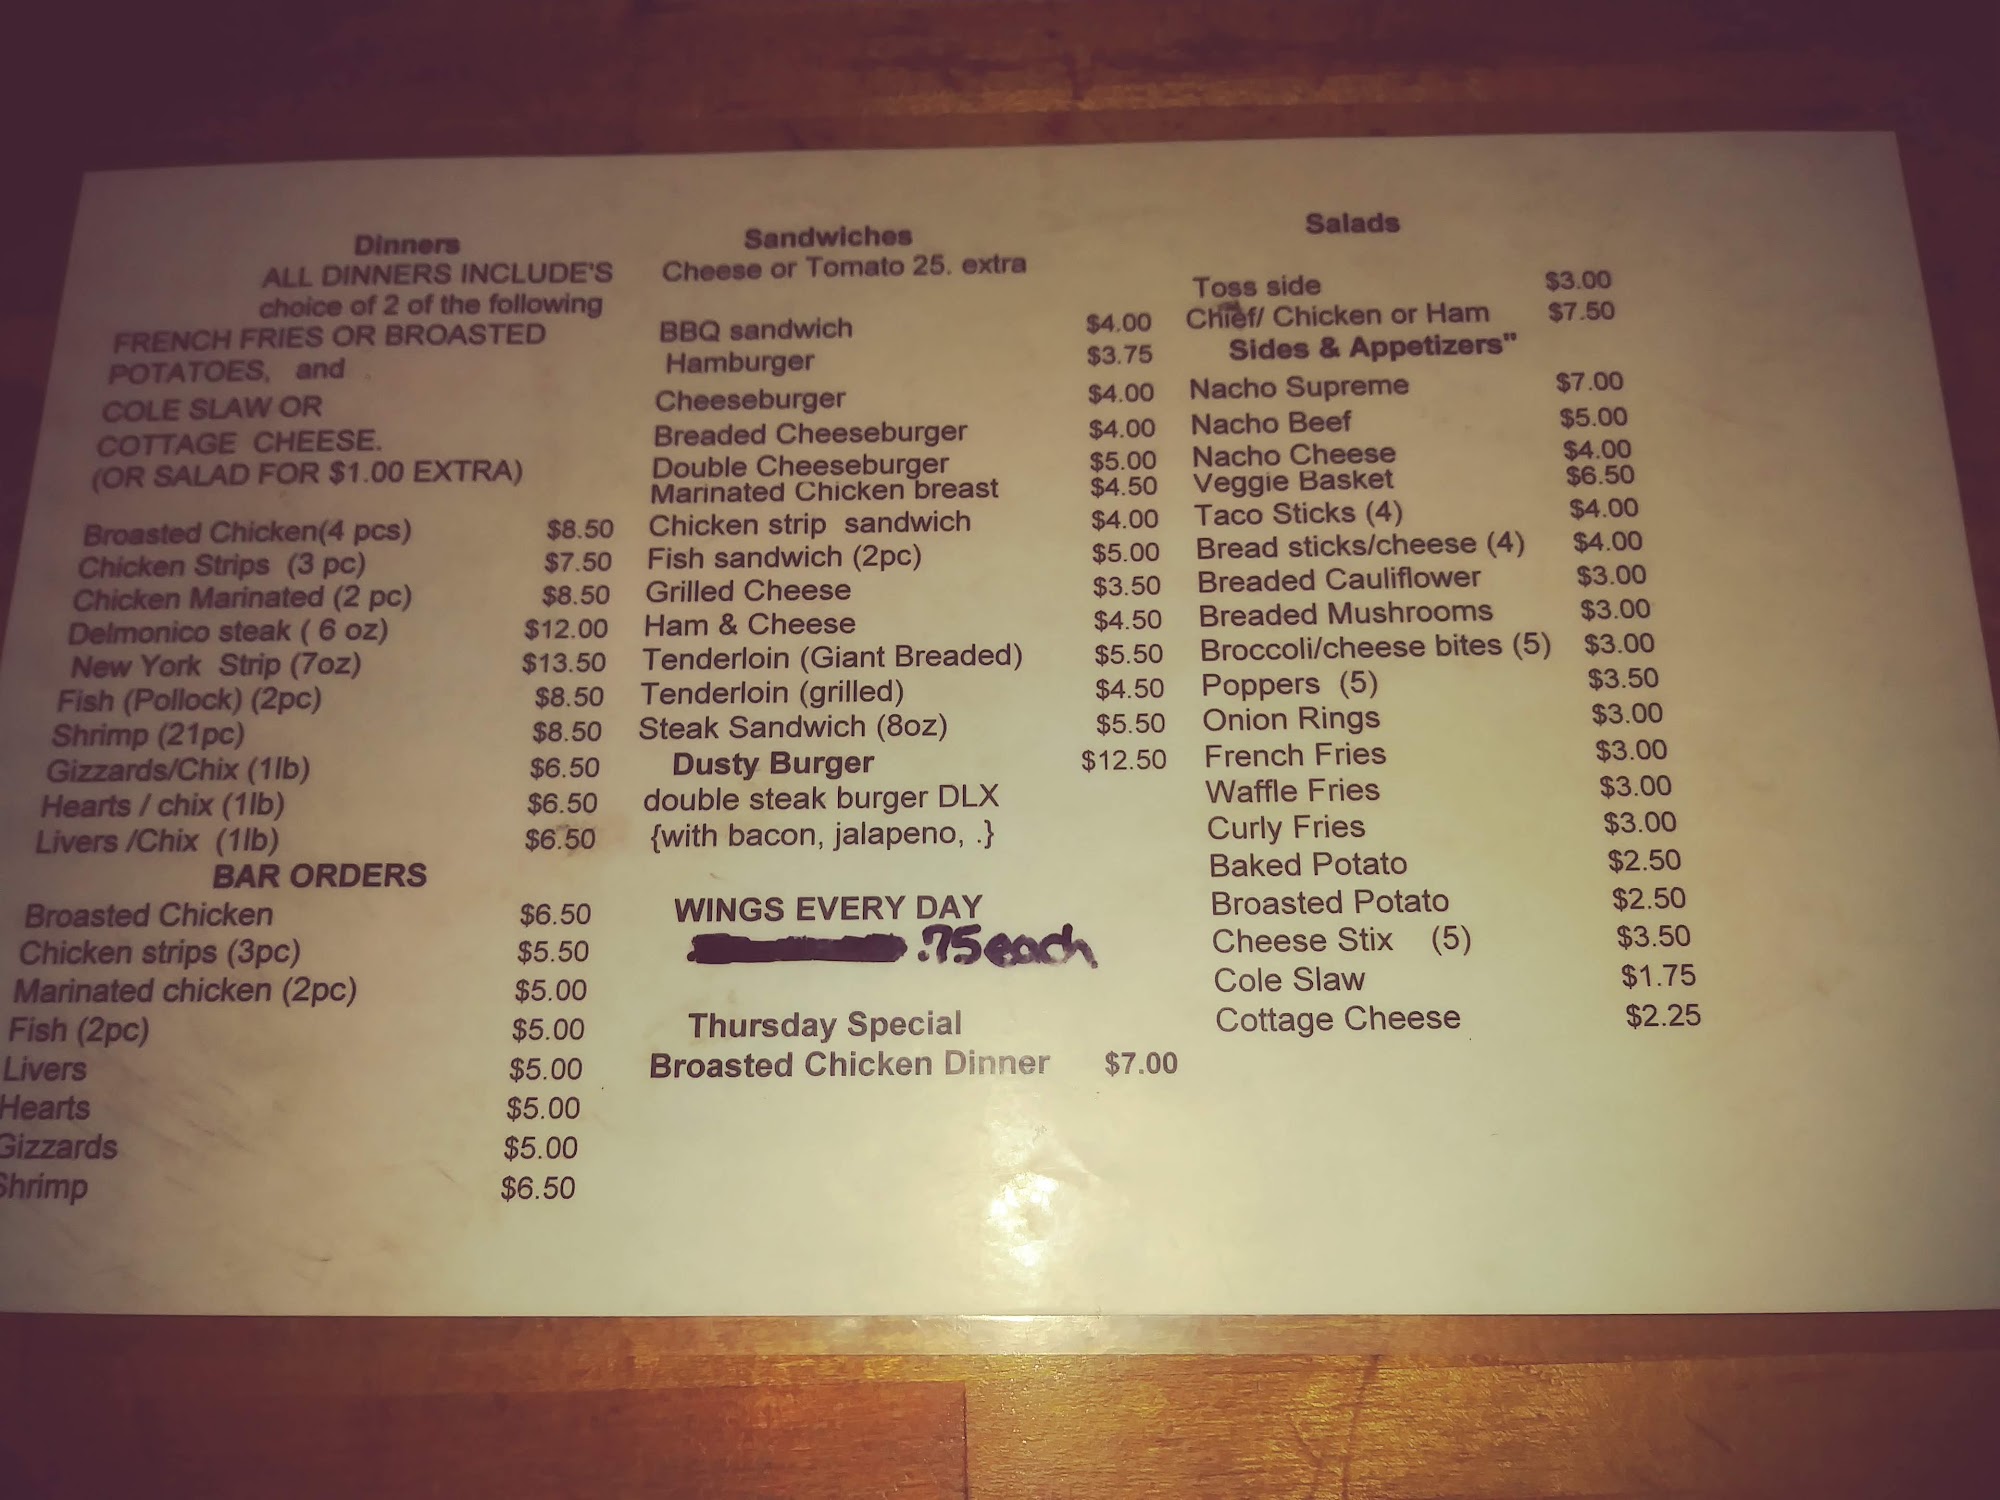 Dinners
ALL DINNERS INCLUDE'S
choice of 2 of the following
FRENCH FRIES OR BROASTED
POTATOES, and
COLE SLAW OR
COTTAGE CHEESE.
(OR SALAD FOR $1.00 EXTRA)
Broasted Chicken(4 pcs) $8.50
Chicken Strips (3 pc) $7.50
Chicken Marinated (2 pc) $8.50
Delmonico steak ( 6 oz) $12.00
New York Strip (7oz) $13.50
Fish (Pollock) (2pc) $8.50
Shrimp (21pc) $8.50
Gizzards/Chix (1lb) $6.50
Hearts / chix (1lb) $6.50
Livers /Chix (1lb) $6.50
BAR ORDERS
Broasted Chicken $6.50
Chicken strips (3pc) $5.50
Marinated chicken (2pc) $5.00
Fish (2pc) $5.00
Livers $5.00
Hearts $5.00
Gizzards $5.00
Shrimp $6.50
Sandwiches
Cheese or Tomato 25. extra
BBQ sandwich $4.00
Hamburger $3.75
Cheeseburger $4.00
Breaded Cheeseburger $4.00
Double Cheeseburger $5.00
Marinated Chicken breast $4.50
Chicken strip sandwich $4.00
Fish sandwich (2pc) $5.00
Grilled Cheese $3.50
Ham & Cheese $4.50
Tenderloin (Giant Breaded) $5.50
Tenderloin (grilled) $4.50
Steak Sandwich (8oz) $5.50
Dusty Burger $12.50
double steak burger DLX
{with bacon, jalapeno, .}
WINGS EVERY DAY
.75 each
Thursday Special
Broasted Chicken Dinner $7.00
Salads
Toss side $3.00
Chief/ Chicken or Ham $7.50
Sides & Appetizers"
Nacho Supreme $7.00
Nacho Beef $5.00
Nacho Cheese $4.00
Veggie Basket $6.50
Taco Sticks (4) $4.00
Bread sticks/cheese (4) $4.00
Breaded Cauliflower $3.00
Breaded Mushrooms $3.00
Broccoli/cheese bites (5) $3.00
Poppers (5) $3.50
Onion Rings $3.00
French Fries $3.00
Waffle Fries $3.00
Curly Fries $3.00
Baked Potato $2.50
Broasted Potato $2.50
Cheese Stix (5) $3.50
Cole Slaw $1.75
Cottage Cheese $2.25